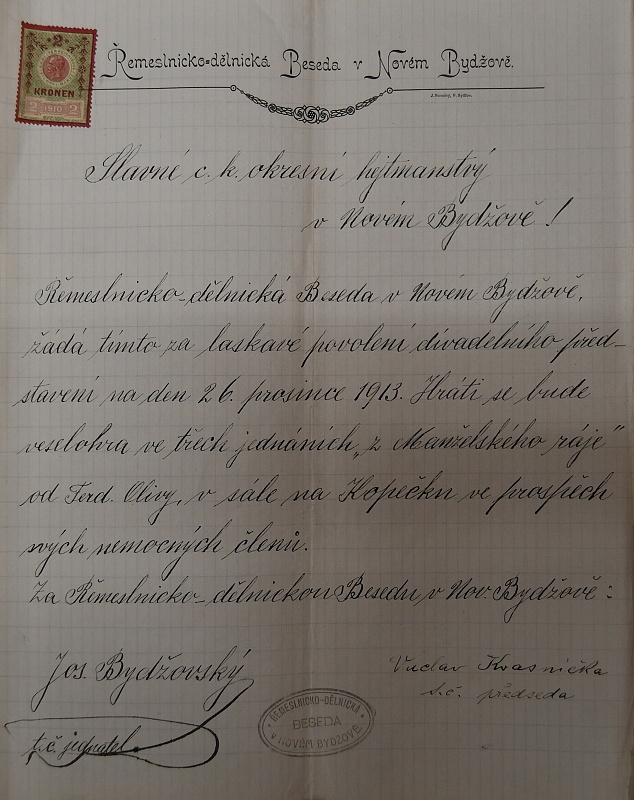 2
KRONEN
2 1910 2
Řemeslnicko-dělnická Beseda v Novém Bydžově.
Slavné c. k. okresní hejtmanstvý
v Novém Bydžově!
Řěmeslnicko-dělnická Beseda v Novém Bydžově,
žádá tímto za laskavé povolení divadelního před-
stavení na den 26. prosince 1913. Hráti se bude
veselohra ve třech jednáních „z Manželského ráje"
od Ferd. Olivy, v sále na Kopečku ve prospěch
svých nemocných členů.
Za Řěmeslnicko-dělnickou Besedu v Nov. Bydžově:
Jos. Bydžovský
t. č. jednatel.
Vaclav Kvasnička
t. č. předseda
ŘEMESLNICKO-DĚLNICKÁ
BESEDA
V NOVÉM BYDŽOVĚ.